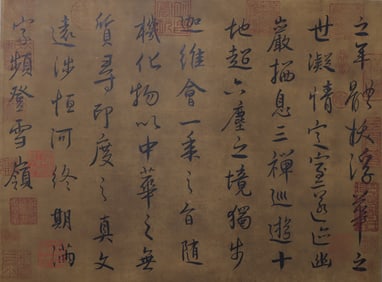 之年體拔浮華之
世凝情定室匿迹幽
巖栖息三禪巡遊十
地超六塵之境獨步
迦維會一乘之旨隨
機化物以中華之無
質尋印度之真文
遠涉恒河終期滿
字頻登雪嶺